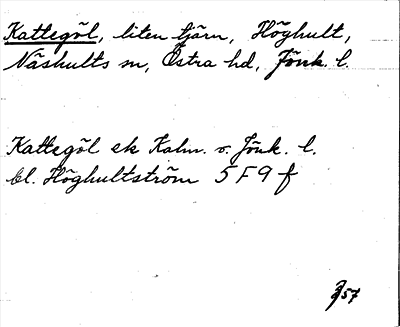 Kattegöl, liten tjärn, Höghult,
Näshults sn, Östra hd, Jönk. l.
Kattegöl ek Kalm. o. Jönk. l.
bl. Höghultström 5 F 9 f
57